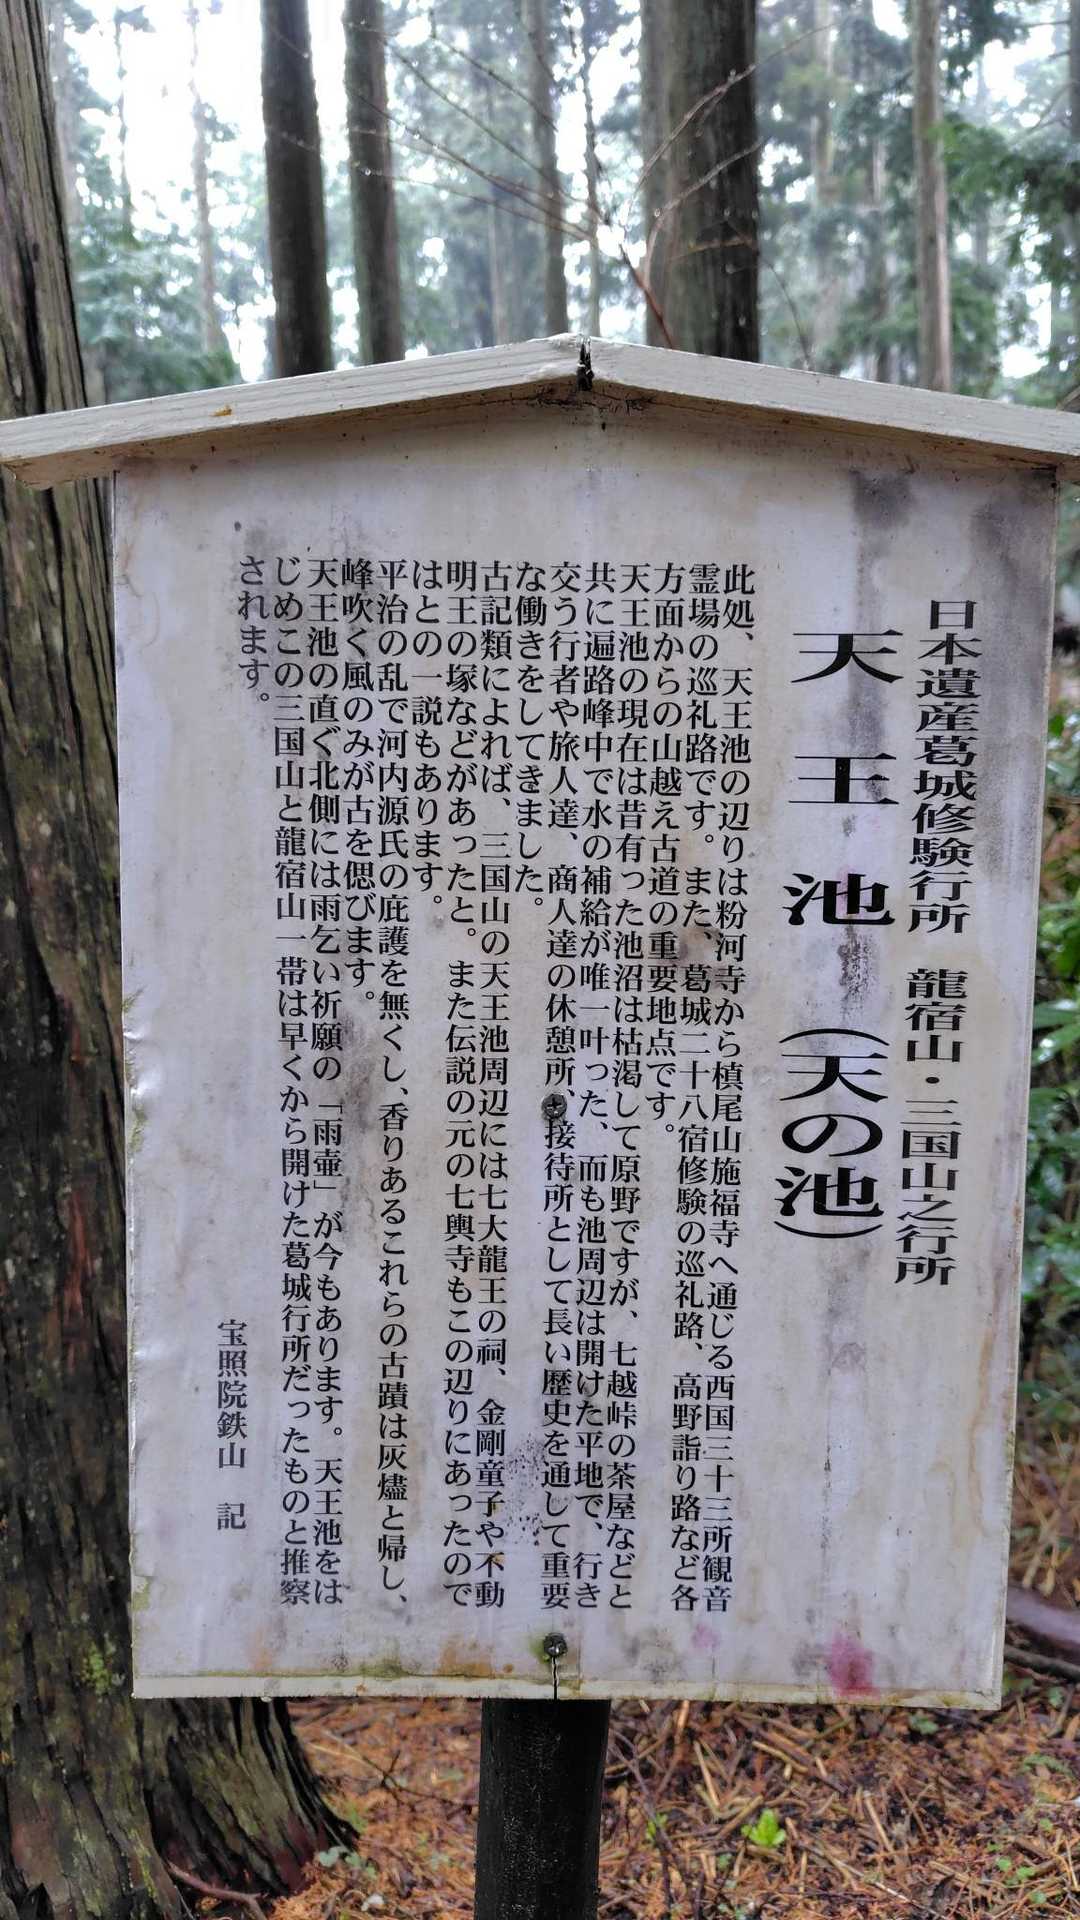 日本遺産葛城修験行所　龍宿山・三国山之行所
天王池（天の池）
此処、天王池の辺りは粉河寺から槙尾山施福寺へ通じる西国三十三所観音
霊場の巡礼路です。また、葛城二十八宿修験の巡礼路、高野詣り路など各
方面からの山越え古道の重要地点です。
天王池の現在は昔有った池沼は枯渇して原野ですが、七越峠の茶屋などと
共に遍路峰中で水の補給が唯一叶った、而も池周辺は開けた平地で、行き
交う行者や旅人達、商人達の休憩所、接待所として長い歴史を通して重要
な働きをしてきました。
古記類によれば、三国山の天王池周辺には七大龍王の祠、金剛童子や不動
明王の塚などがあったと。また伝説の元の七輿寺もこの辺りにあったので
はとの一説もあります。
平治の乱で河内源氏の庇護を無くし、香りあるこれらの古蹟は灰燼と帰し、
峰吹く風のみが古を偲びます。
天王池の直ぐ北側には雨乞い祈願の「雨壷」が今もあります。天王池をは
じめこの三国山と龍宿山一帯は早くから開けた葛城行所だったものと推察
されます。
宝照院鉄山　記